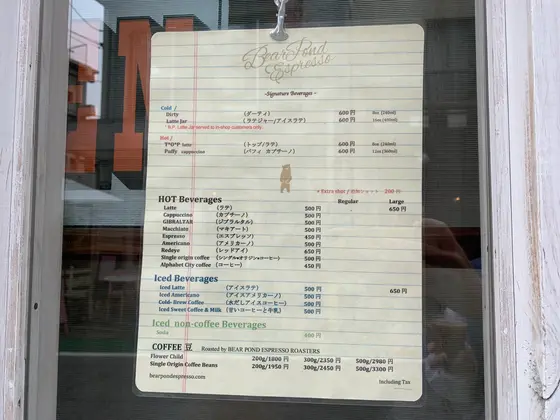 Bear Pond
Espresso
~Signature Beverages~
Cold /
Dirty (ダーティ) 600円 8oz (240ml)
Latte Jar (ラテジャー/アイスラテ) 600円 16oz (480ml)
Latte Jar served to in-shop customers only
Hot /
T*O*P latte (トップ/ラテ) 600円
Puffy cappuccino (パフィ カプチーノ) 600円 12oz (360ml)
× Extra shot / 200円
HOT Beverages Regular Large
Latte (ラテ) 500円 650円
Cappuccino (カプチーノ) 500円
GIBRALTAR (ジブラルタル) 500円
Macchiato (マキアート) 500円
Espresso (エスプレッソ) 450円
Americano (アメリカーノ) 500円
Redeye (レッドアイ) 650円
Single origin coffee (シングル●オリジン●コーヒー) 500円
Alphabet City coffee (コーヒー) 450円
Iced Beverages
Iced Latte (アイスラテ) 500円 650円
Iced Americano (アイスアメリカーノ) 500円
Cold-Brew Coffee (水だしアイスコーヒー) 500円
Iced Sweet Coffee & Milk (甘いコーヒーと牛乳) 500円
Iced non-coffee Beverages
Soda 400円
COFFEE 豆 Roasted by BEAR POND ESPRESSO ROASTERS
Flower Child 200g/1800円 300g/2350 500g/2980円
Single Origin Coffee Beans 200g/1950円 300g/2450 500g/3300円
bearpondespresso.com Including Tax